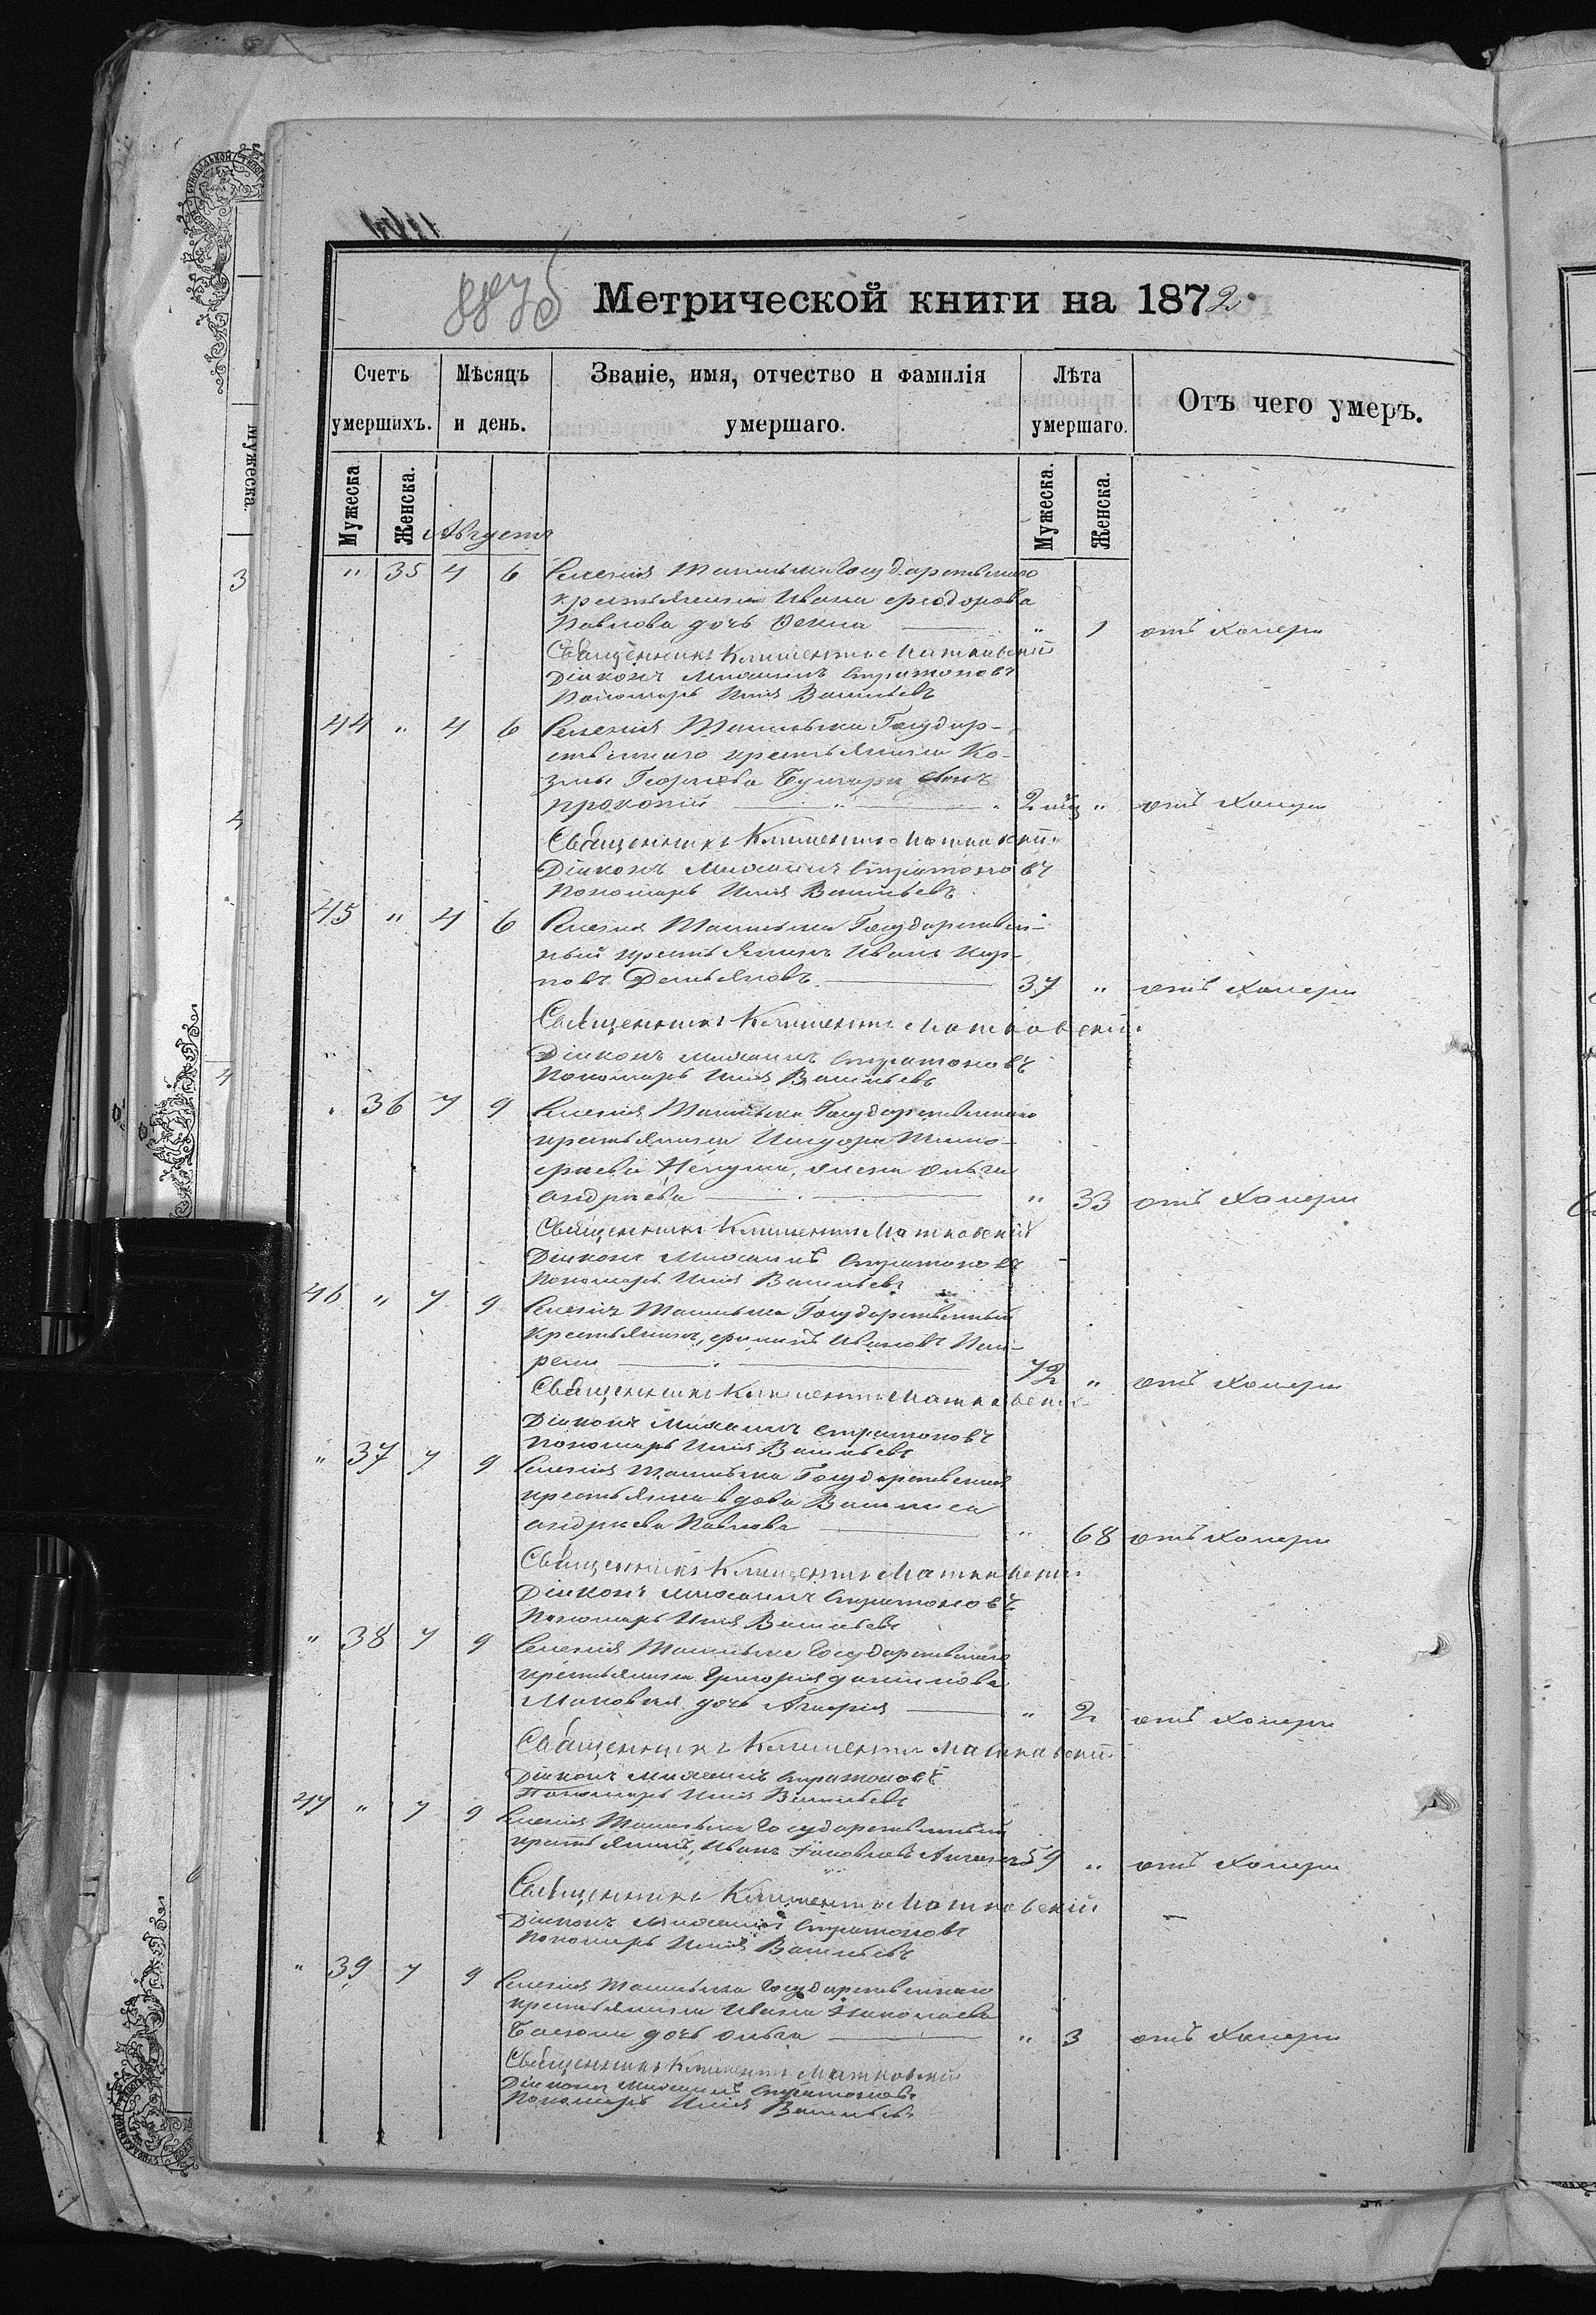 Метрической книги на 1872.
Счетъ умершихъ.
Мѣсяцъ и день.
Званіе, имя, отчество и фамилія умершаго.
Лѣта умершаго.
Отъ чего умеръ.
Мужеска
Женска.
Августъ
Мужеска.
Женска.
" 35 4 6 Селенія Ташлыка Государственнаго
крестьянина Ивана Феодорова
Павлова дочь Фекла " 1 отъ холеры
Священникъ Климентъ Матковскій
Діаконъ Михаилъ Стратоновъ
Пономарь Илія Васильевъ
44 " 4 6 Селенія Ташлыка Государ-
ственнаго крестьянина Ко-
змы Георгіева сынъ
Прокопій 2 мѣц " отъ холеры
Священникъ Климентъ Матковскій
Діаконъ Михаилъ Стратоновъ
Пономарь Илія Васильевъ
45 " 4 6 Селенія Ташлыка Государствен-
ный крестьянинъ Иванъ Кар-
повъ Демьяновъ 37 " отъ холеры
Священникъ Климентъ Матковскій
Діаконъ Михаилъ Стратоновъ
Пономарь Илія Васильевъ
" 36 7 9 Селенія Ташлыка Государственнаго
крестьянина Тимо-
феева жена Ольга
Андреева " 33 отъ холеры
Священникъ Климентъ Матковскій
Діаконъ Михаилъ Стратоновъ
Пономарь Илія Васильевъ
46 " 7 9 Селенія Ташлыка Государственный
крестьянинъ, Филипъ Ивановъ
72 " отъ холеры
Священникъ Климентъ Матковскій
Діаконъ Михаилъ Стратоновъ
Пономарь Илія Васильевъ
" 37 7 9 Селенія Ташлыка Государственнаго
вдова Василиса
Андреева Павлова " 68 отъ холеры
Священникъ Климентъ Матковскій
Діаконъ Михаилъ Стратоновъ
Пономарь Илія Васильевъ
" 38 7 9 Селенія Ташлыка Государственнаго
крестьянина Григорія Данилова
Маковея дочь " 2 отъ холеры
Священникъ Климентъ Матковскій
Діаконъ Михаилъ Стратоновъ
Пономарь Илія Васильевъ
47 " 7 9 Селенія Ташлыка Государственный
крестьянинъ, Иванъ Яковлевъ 59 " отъ холеры
Священникъ Климентъ Матковскій
Діаконъ Михаилъ Стратоновъ
Пономарь Илія Васильевъ
" 39 7 9 Селенія Ташлыка Государственнаго
крестьянина Ивана Николаева
дочь Ольга " 3 отъ холеры
Священникъ Климентъ Матковскій
Діаконъ Михаилъ Стратоновъ
Пономарь Илія Васильевъ